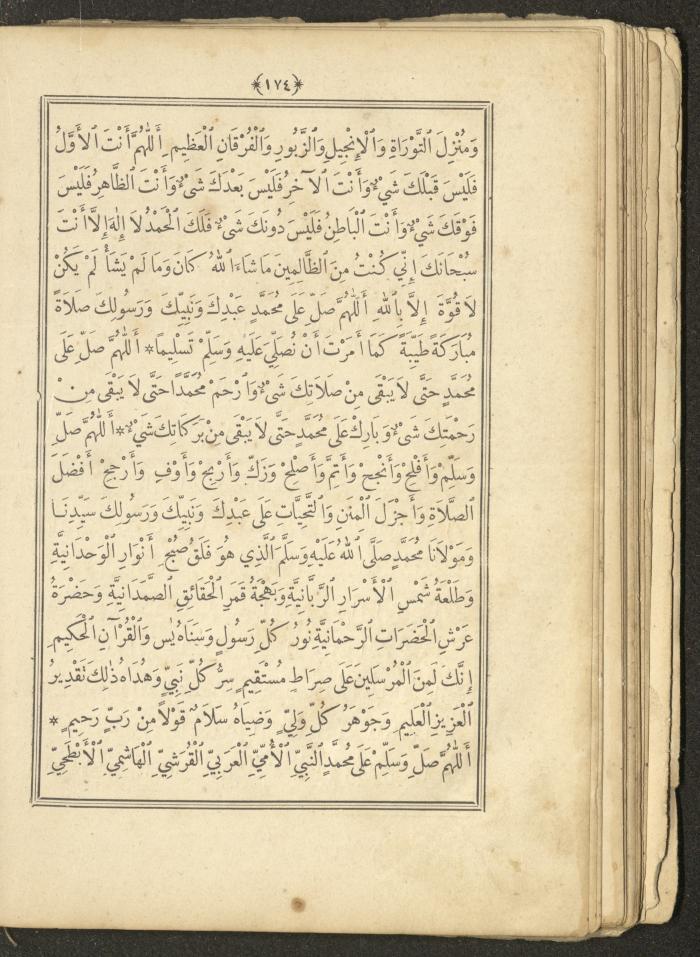 ﴿١٧٤﴾
وَمُنْزِلَ التَّوْرَاةِ وَالْإِنْجِيلِ وَالزَّبُورِ وَالْفُرْقَانِ الْعَظِيمِ أَللّٰهُمَّ أَنْتَ الْأَوَّلُ
فَلَيْسَ قَبْلَكَ شَيْءٌ وَأَنْتَ الْآخِرُ فَلَيْسَ بَعْدَكَ شَيْءٌ وَأَنْتَ الظَّاهِرُ فَلَيْسَ
فَوْقَكَ شَيْءٌ وَأَنْتَ الْبَاطِنُ فَلَيْسَ دُونَكَ شَيْءٌ فَلَكَ الْحَمْدُ لَا إِلٰهَ إِلَّا أَنْتَ
سُبْحَانَكَ إِنِّي كُنْتُ مِنَ الظَّالِمِينَ مَا شَاءَ اللهُ كَانَ وَمَا لَمْ يَشَأْ لَمْ يَكُنْ
لَا قُوَّةَ إِلَّا بِاللهِ أَللّٰهُمَّ صَلِّ عَلَى مُحَمَّدٍ عَبْدِكَ وَنَبِيِّكَ وَرَسُولِكَ صَلَاةً
مُبَارَكَةً طَيِّبَةً كَمَا أَمَرْتَ أَنْ نُصَلِّيَ عَلَيْهِ وَسَلِّمْ تَسْلِيمًا * أَللّٰهُمَّ صَلِّ عَلَى
مُحَمَّدٍ حَتَّى لَا يَبْقَى مِنْ صَلَاتِكَ شَيْءٌ وَارْحَمْ مُحَمَّدًا حَتَّى لَا يَبْقَى مِنْ
رَحْمَتِكَ شَيْءٌ وَبَارِكْ عَلَى مُحَمَّدٍ حَتَّى لَا يَبْقَى مِنْ بَرَكَاتِكَ شَيْءٌ * أَللّٰهُمَّ صَلِّ
وَسَلِّمْ وَأَفْلِحْ وَأَنْجِحْ وَأَتِمَّ وَأَصْلِحْ وَزَكِّ وَأَرْبِحْ وَأَوْفِ وَأَرْجِحْ أَفْضَلَ
الصَّلَاةِ وَأَجْزَلَ الْمِنَنِ وَالتَّحِيَّاتِ عَلَى عَبْدِكَ وَنَبِيِّكَ وَرَسُولِكَ سَيِّدِنَا
وَمَوْلَانَا مُحَمَّدٍ صَلَّى اللهُ عَلَيْهِ وَسَلَّمَ الَّذِي هُوَ فَلَقُ صُبْحِ أَنْوَارِ الْوَحْدَانِيَّةِ
وَطَلْعَةُ شَمْسِ الْأَسْرَارِ الرَّبَّانِيَّةِ وَبَهْجَةُ قَمَرِ الْحَقَائِقِ الصَّمَدَانِيَّةِ وَحَضْرَةُ
عَرْشِ الْحَضَرَاتِ الرَّحْمَانِيَّةِ نُورُ كُلِّ رَسُولٍ وَسَنَاهُ يٰسٓ وَالْقُرْآنِ الْحَكِيمِ
إِنَّكَ لَمِنَ الْمُرْسَلِينَ عَلَى صِرَاطٍ مُسْتَقِيمٍ سِرُّ كُلِّ نَبِيٍّ وَهُدَاهُ ذٰلِكَ تَقْدِيرُ
الْعَزِيزِ الْعَلِيمِ وَجَوْهَرُ كُلِّ وَلِيٍّ وَضِيَاهُ سَلَامٌ قَوْلًا مِنْ رَبٍّ رَحِيمٍ *
أَللّٰهُمَّ صَلِّ وَسَلِّمْ عَلَى مُحَمَّدٍ النَّبِيِّ الْأُمِّيِّ الْعَرَبِيِّ الْقُرَشِيِّ الْهَاشِمِيِّ الْأَبْطَحِيِّ